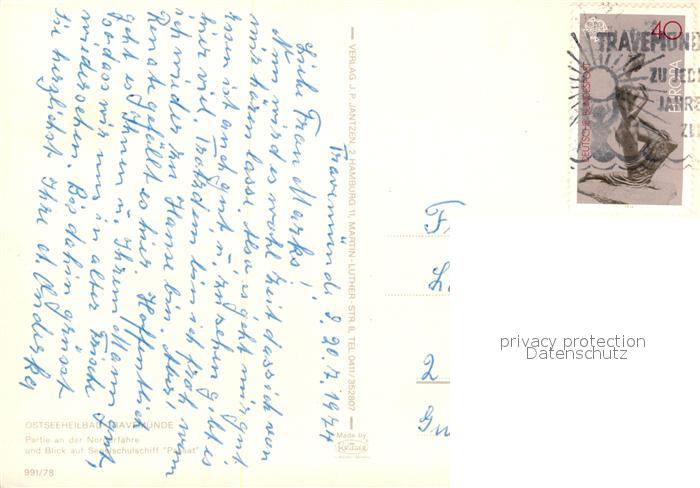 Travemünde, d. 20.7.1974
Liebe Frau Marks!
Nun wird es wohl Zeit dass ich von
mir hören lasse. Also es geht mir gut
Essen ist auch gut u. zu sehen gibt es
hier viel. Trotzdem bin ich froh wenn
ich wieder zu Hause bin. Aber,
Renate gefällt es hier. Hoffentlich
geht es Ihnen u. Ihrem Mann gut,
sodass wir uns in alter Frische
wiedersehen. Bis dahin grüsst
Sie herzlichst Ihre
— VERLAG J. P. JANTZEN, 2 HAMBURG 11, MARTIN-LUTHER-STR. 8, TEL. 0411/352807 —
OSTSEEHEILBAD TRAVEMÜNDE
Partie an der Norderfähre
und Blick auf Segelschulschiff "Passat"
991/78
Made by
Krüger
40
DEUTSCHE BUNDESPOST
EUROPA
TRAVEMÜNDE
ZU JED
JAHRE
2
privacy protection
Datenschutz